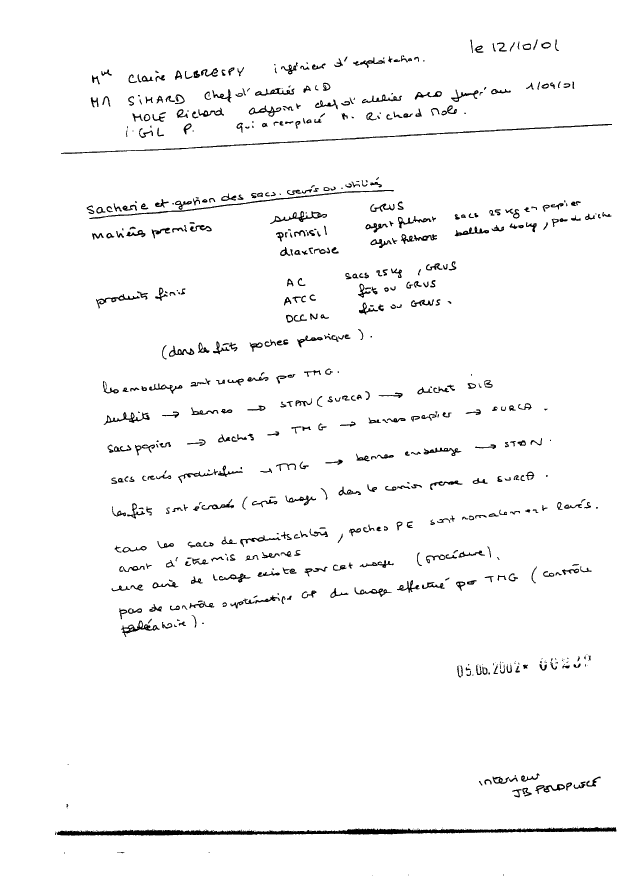 le 12/10/01
Mme Claire ALBRESPY ingénieur d'exploitation.
Mr SIMARD chef d'ateliers ACD
MOLE Richard adjoint chef d'atelier ACD jusqu'au 1/09/01
GIL P. qui a remplacé M. Richard Mole.
Sacherie et gestion des sacs crevés ou utilisés
matières premières sulfites GRVS
primisil agent filtrant sacs 25 kg en papier
diaxtrose agent filtrant balles de 40 kg, pas de déchet
produits finis AC sacs 25 kg, GRVS
ATCC fûts ou GRVS
DCCNa fûts ou GRVS.
(dans les fûts poches plastique).
les emballages sont récupérés par TMG.
sulfits → bennes → STAN (SURCA) → déchet DIB
sacs papiers → dechets → TMG → bennes papier → SURCA.
sacs crevés produits finis → TMG → bennes emballage → STAN.
les fûts sont écrasés (après lavage) dans le camion presse de SURCA.
tous les sacs de produits chlorés, poches PE sont normalement lavés.
avant d'être mis en bennes
une aire de lavage existe pour cet usage (procédure).
pas de contrôle systématique GP du lavage effectué par TMG (contrôle
aléatoire).
05.06.2002*
interview
JB